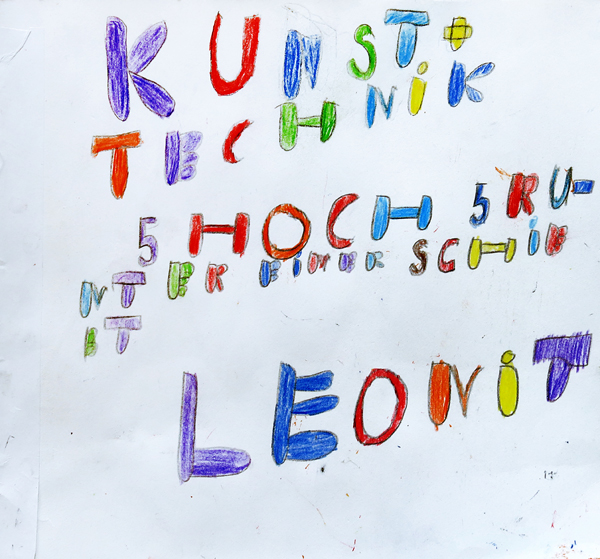 KUNST+
TECHNiK
5 HOCH 5 RU-
NTER EiMER SCHiB
ET
LEONiT